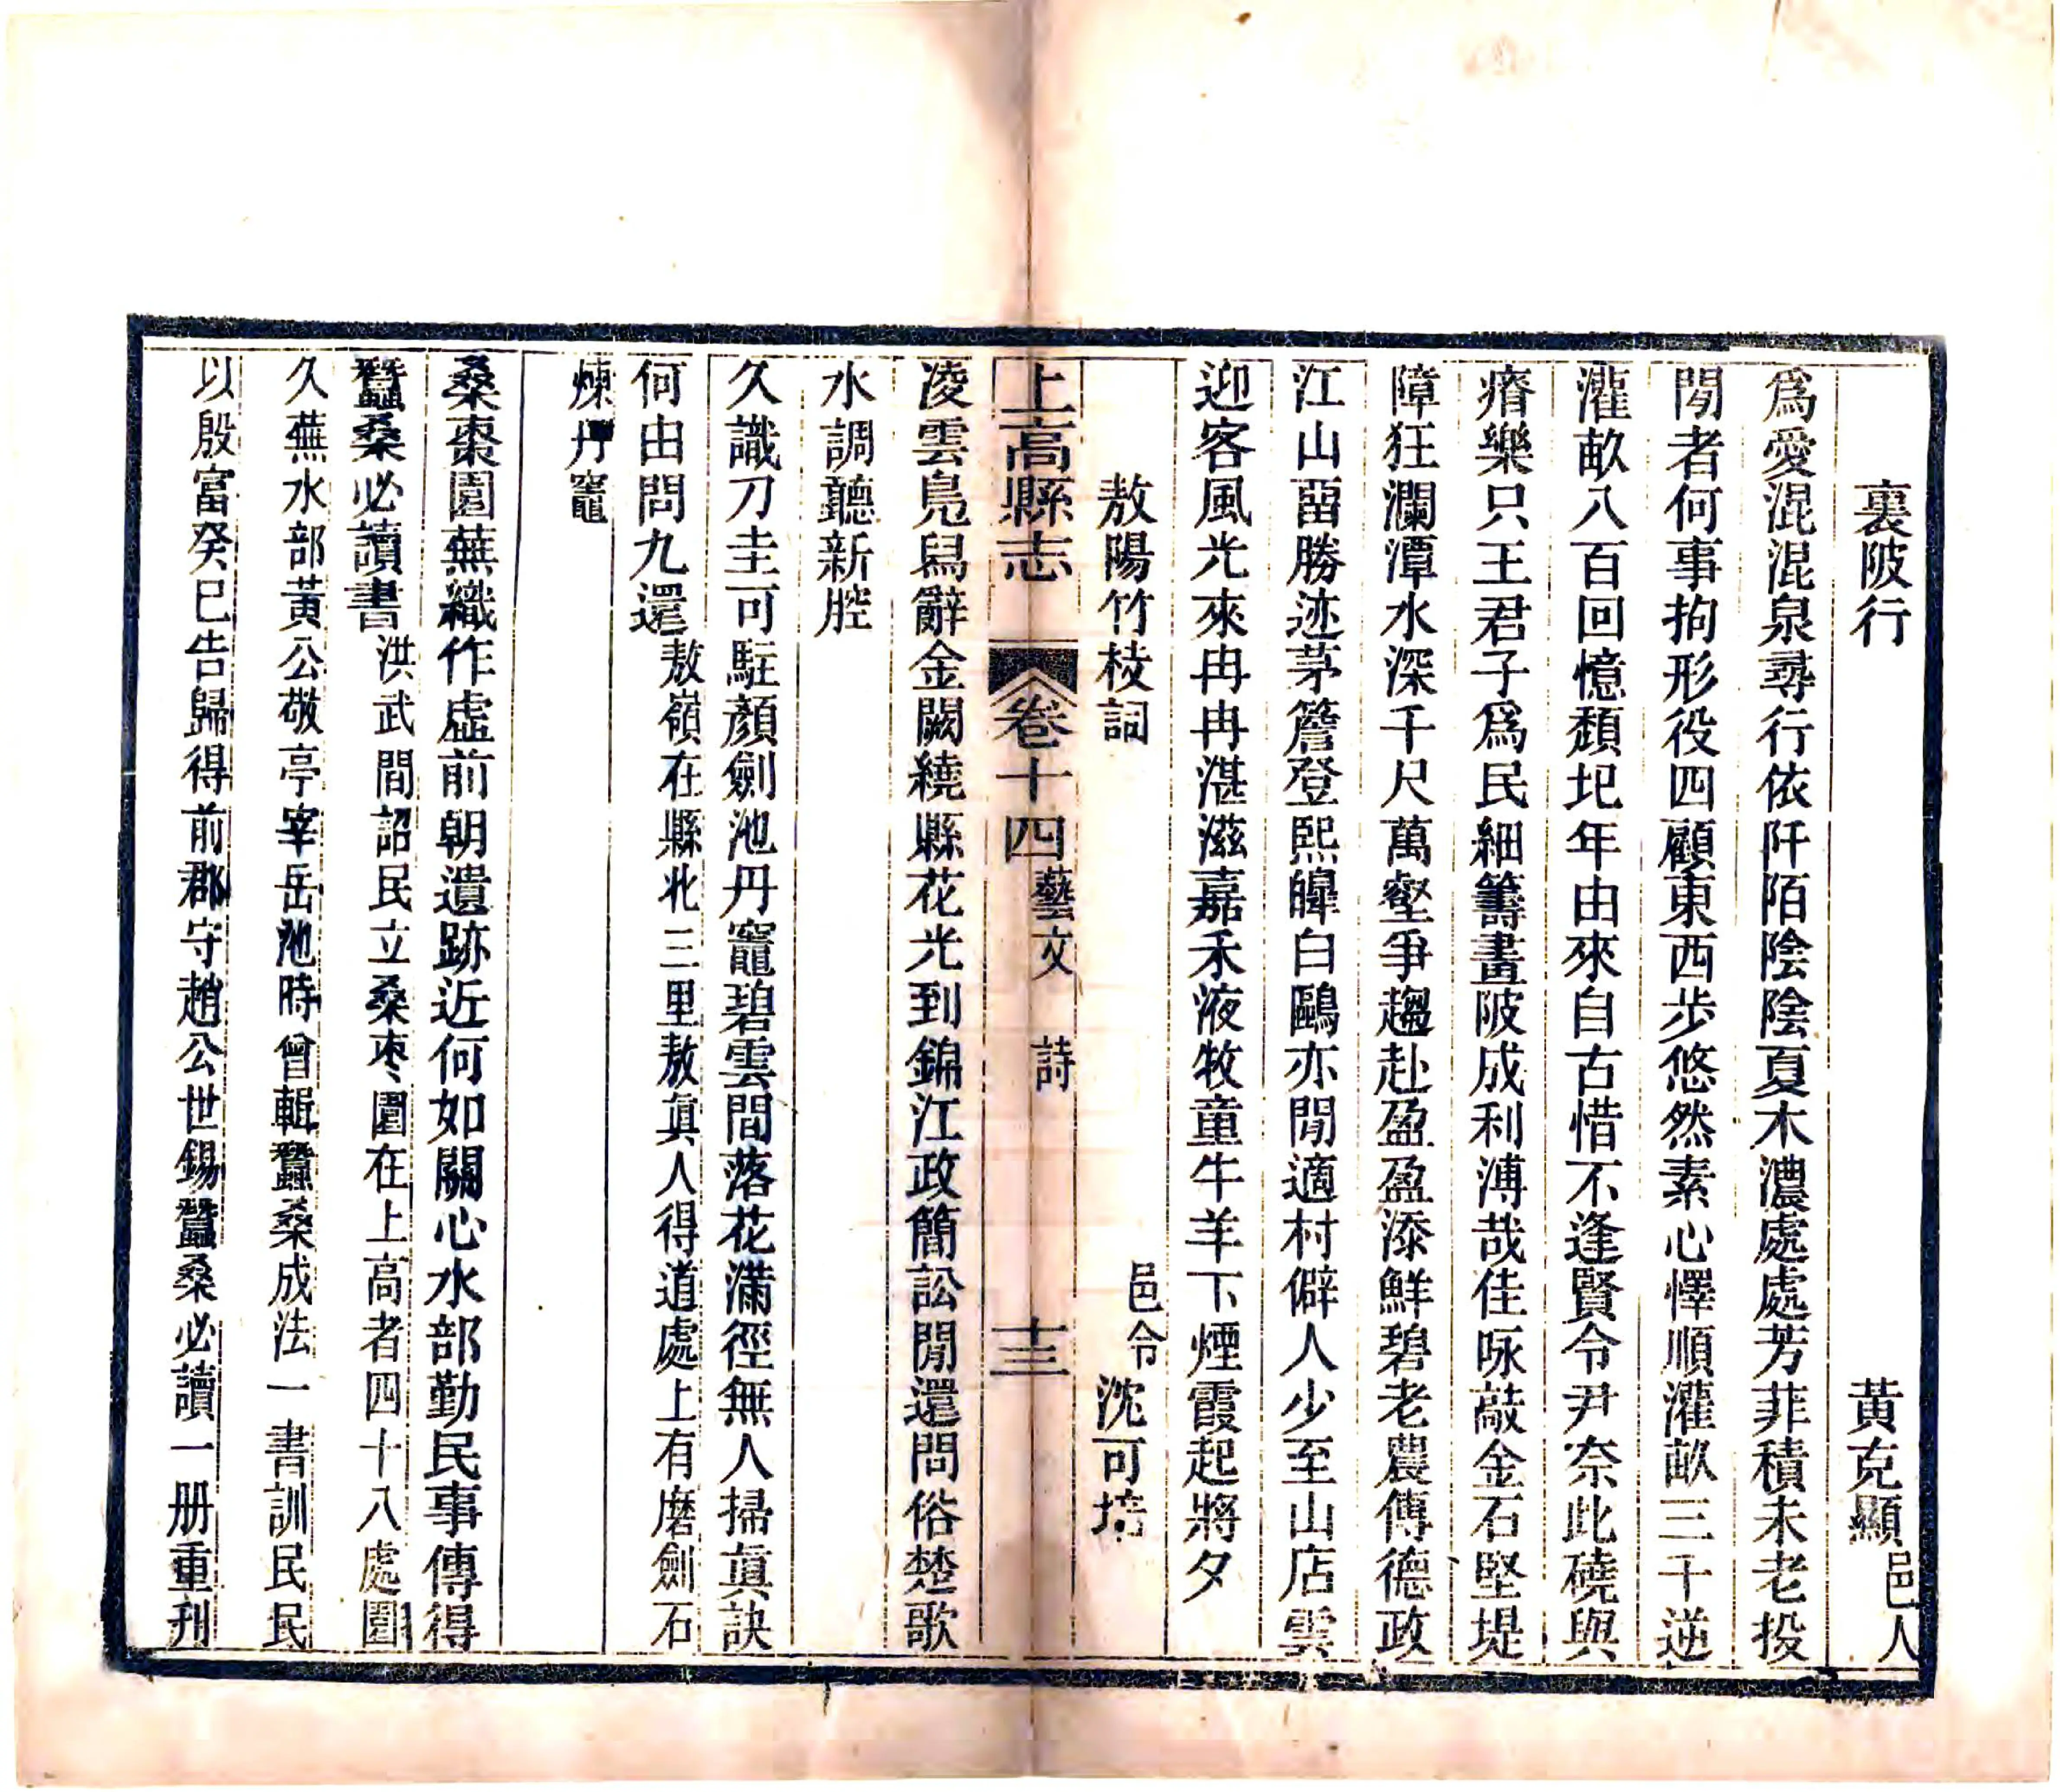 裏陂行 黃克顯邑人
爲愛混混泉尋行依阡陌陰陰夏木濃處處芳菲積未老投
閒者何事拘形役四顧東西步悠然素心懌順灌畝三千逆
灌畝八百回憶頹圮年由來自古惜不逢賢令尹奈此磽與
瘠樂只王君子爲民細籌畫陂成利溥哉佳咏敲金石堅堤
障狂瀾潭水深千尺萬壑爭趨赴盈盈添鮮碧老農傳德政
江山畱勝迹茅簷登熙皥白鷗亦閒適村僻人少至山店雲
迎客風光來冉冉湛滋嘉禾液牧童牛羊下煙霞起將夕
敖陽竹枝詞 邑令沈可培
上高縣志 卷十四藝文 詩 十三
凌雲鳧舄辭金闕繞縣花光到錦江政簡訟閒還問俗楚歌
水調聽新腔
久識刀圭可駐顏劍池丹竈碧雲間落花滿徑無人掃眞訣
何由問九還敖嶺在縣北三里敖眞人得道處上有磨劍石
煉丹竈
桑棗園蕪織作虛前朝遺跡近何如關心水部勤民事傳得
蠶桑必讀書洪武間詔民立桑枣園在上高者四十八處園
久蕪水部黃公敬亭宰岳池時曾輯蠶桑成法一書訓民民
以殷富癸巳告歸得前郡守趙公世錫蠶桑必讀一册重刋